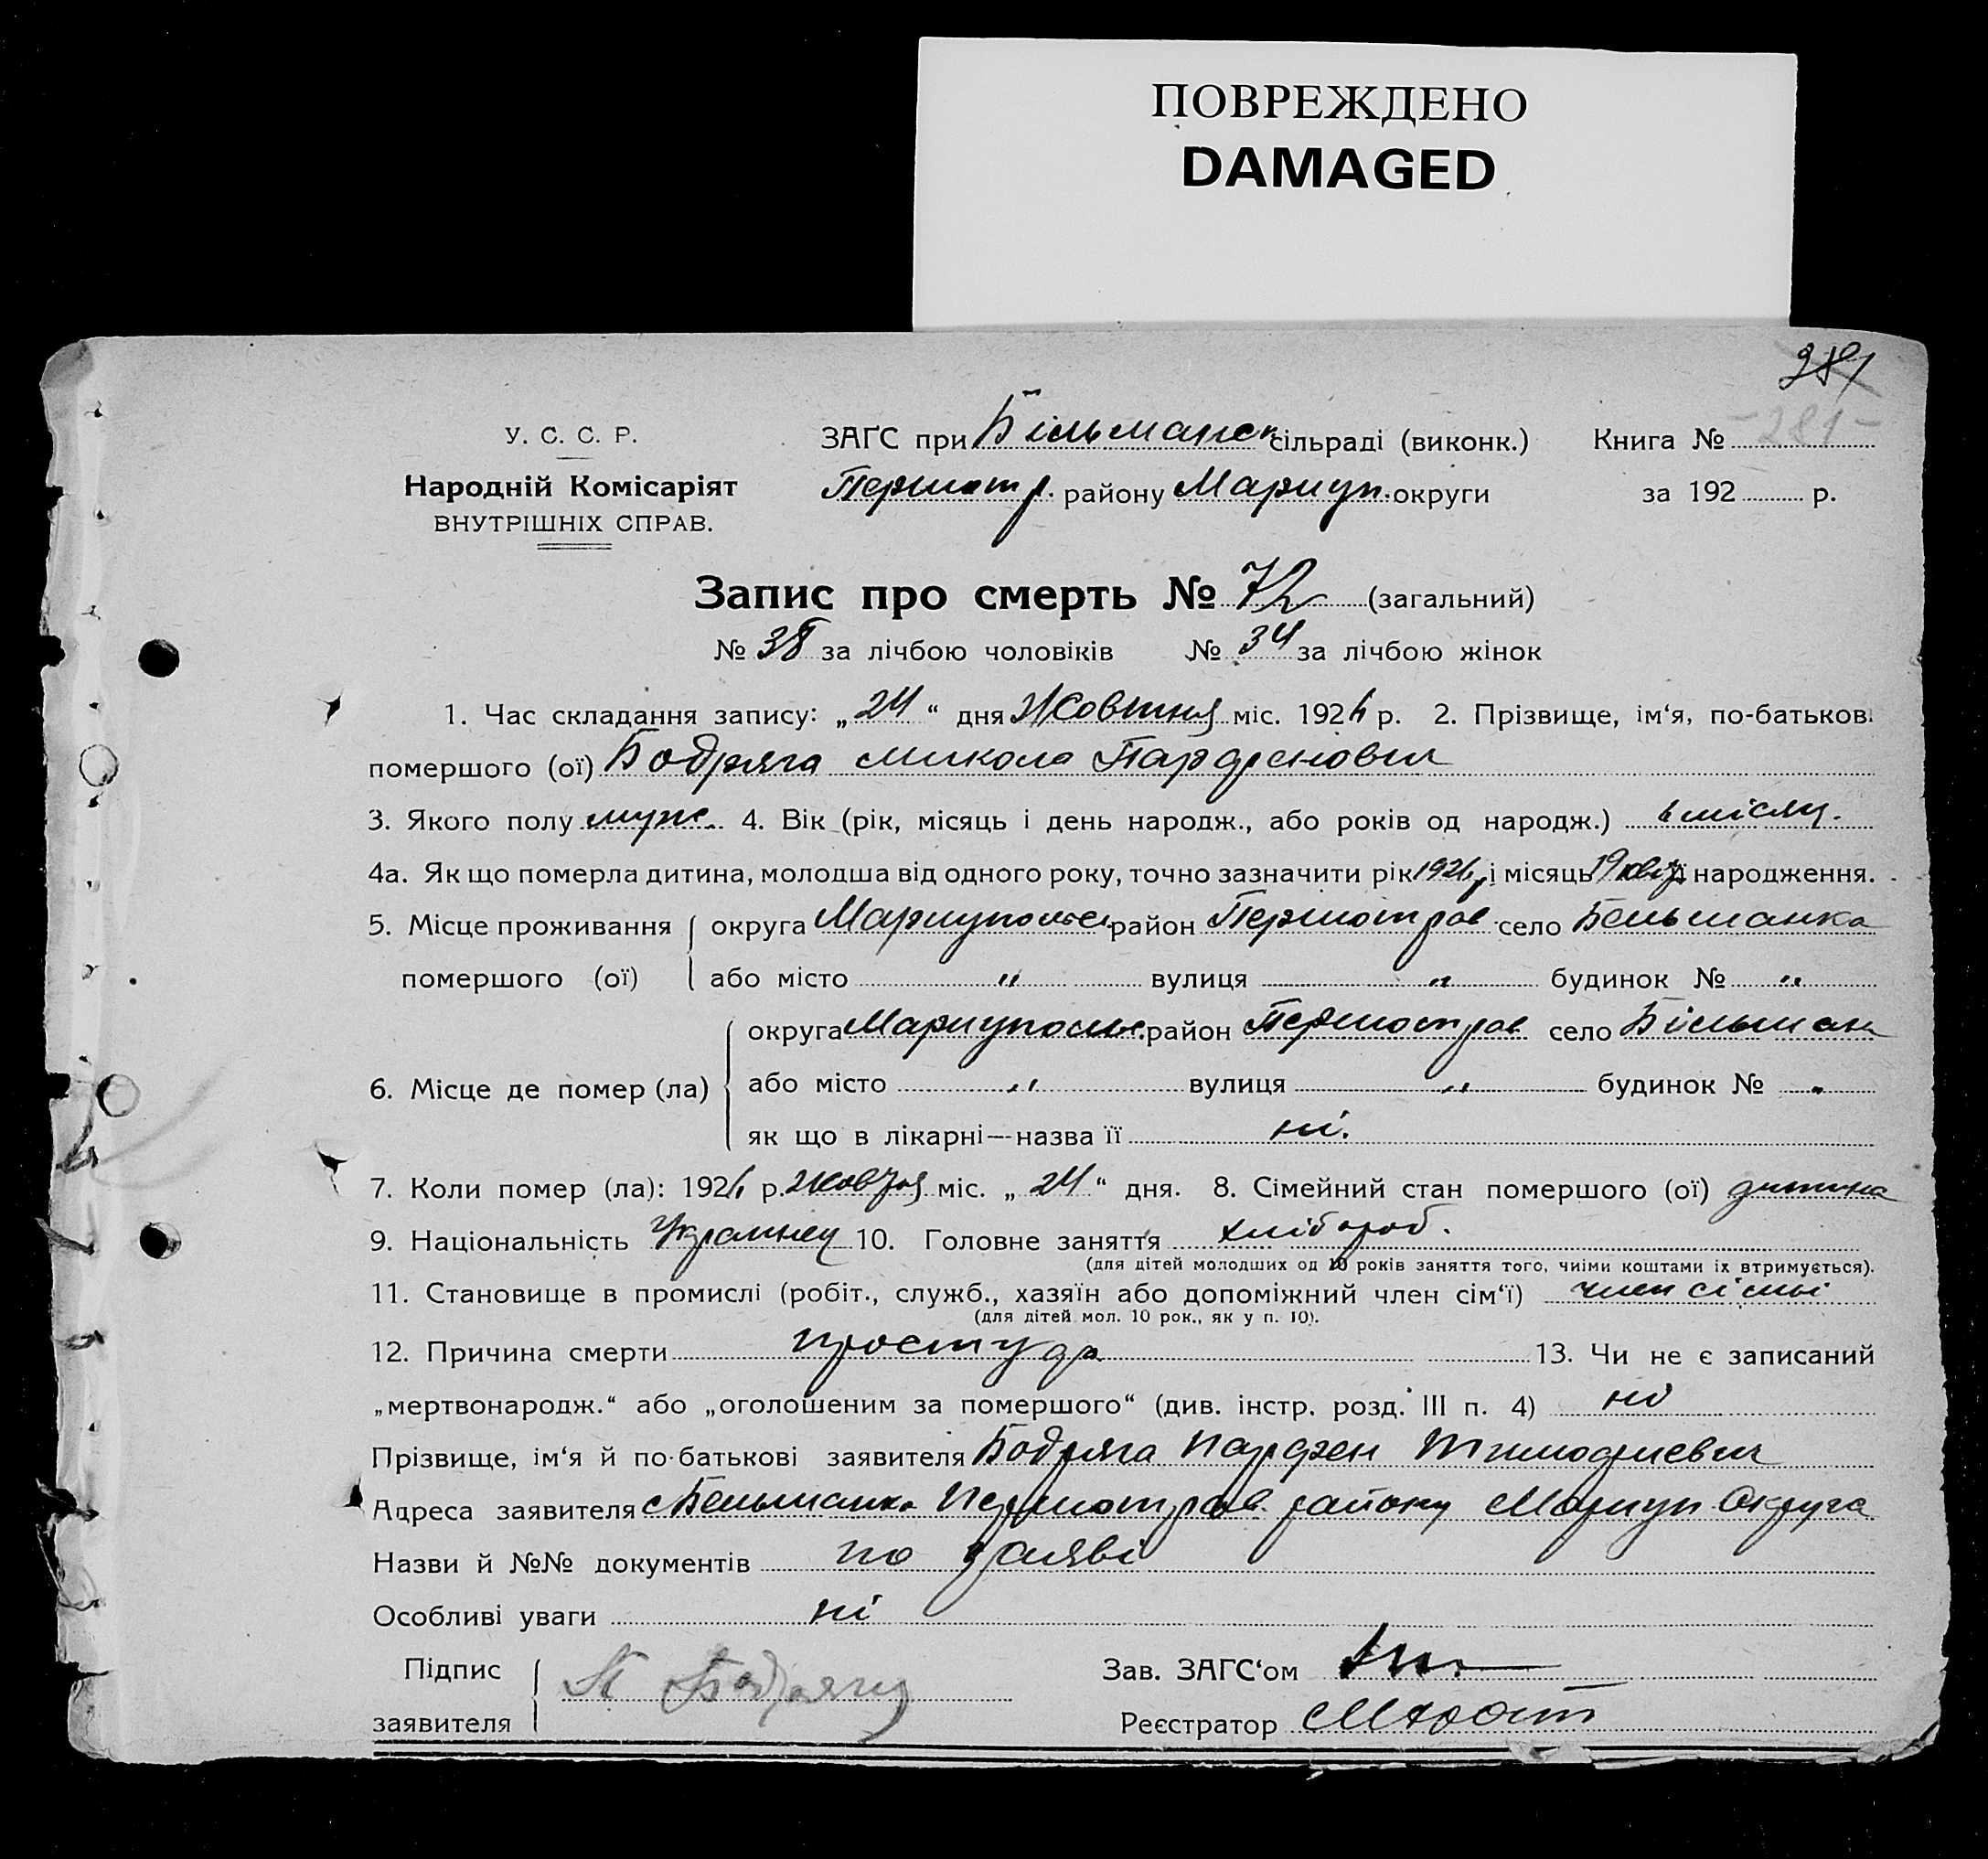 ПОВРЕЖДЕНО
DAMAGED
281
У. С. С. Р.
Народній Комісаріят
ВНУТРІШНІХ СПРАВ.
ЗАҐС при Більманск сільраді (виконк.)
Першотр. району Мариуп. округи
Книга № -281-
за 192 р.
Запис про смерть № 72 (загальний)
№ 38 за лічбою чоловіків № 34 за лічбою жінок
1. Час складання запису: „24“ дня Жовтня міс. 1926 р. 2. Прізвище, ім‘я, по-батькові
помершого (ої) Бодряга Микола Парфенович
3. Якого полу муж. 4. Вік (рік, місяць і день народж., або років од народж.) 6 місяц.
4а. Як що померла дитина, молодша від одного року, точно зазначити рік 1926 і місяць 19 народження.
5. Місце проживання помершого (ої) округа Мариупольс. район Першотрав село Бельманка
або місто " вулиця " будинок № "
6. Місце де помер (ла) округа Мариупольс. район Першотрав село Більманк
або місто " вулиця " будинок № "
як що в лікарні—назва її ні.
7. Коли помер (ла): 1926 р. жовтня міс. „24“ дня. 8. Сімейний стан помершого (ої) дитина
9. Національність Украинец 10. Головне заняття хлібороб.
(для дітей молодших од 10 років заняття того, чиїми коштами їх втримується).
11. Становище в промислі (робіт., служб., хазяїн або допоміжний член сім‘ї) член сімьі
(для дітей мол. 10 рок., як у п. 10).
12. Причина смерти простуда 13. Чи не є записаний
„мертвонародж.“ або „оголошеним за помершого“ (див. інстр. розд. III п. 4) ні
Прізвище, ім‘я й по-батькові заявителя Бодряга Парфен Тимофиевич
Адреса заявителя с Бельманка Першотрав. району Мариуп Округа
Назви й №№ документів по заяві
Особливі уваги ні
Підпис заявителя П Бодряга
Зав. ЗАҐС‘ом
Реєстратор